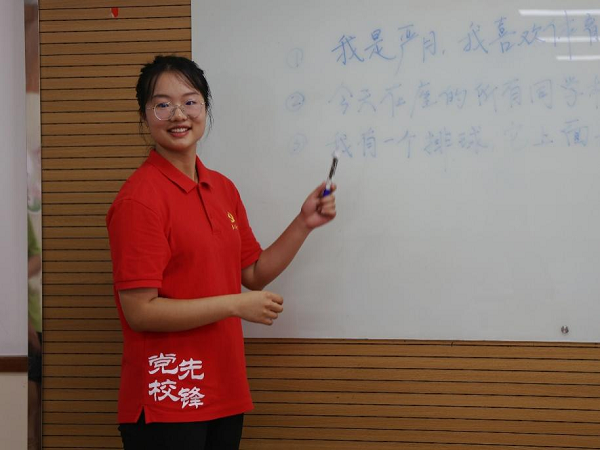 ① 我是严月，我喜欢
② 今天在座的所有同学
③ 我有一个排球，它上面
党校
先锋